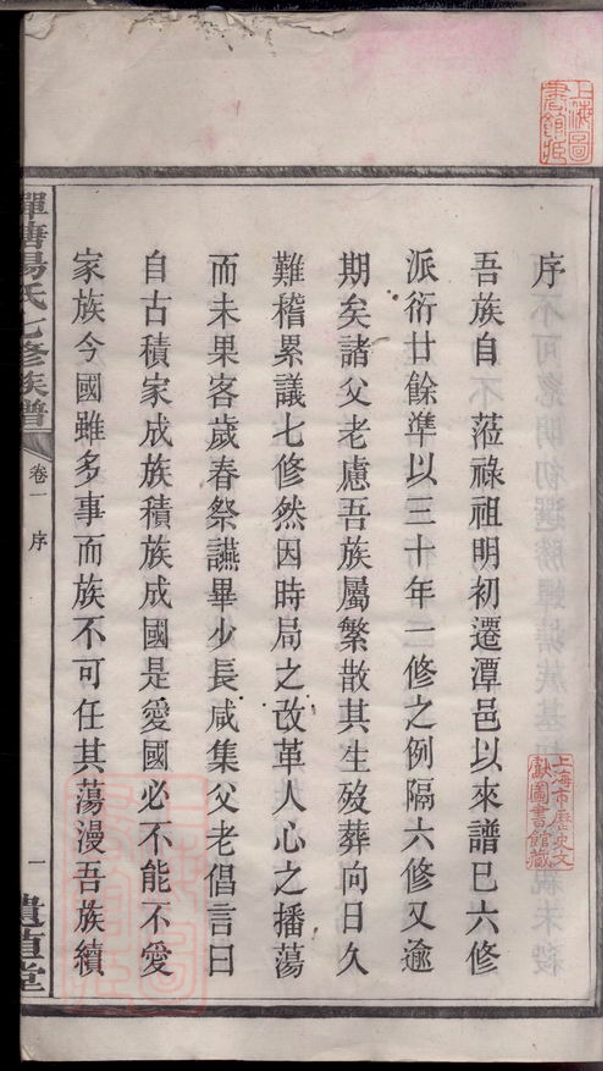 序
吾族自 蒞祿祖明初遷潭邑以來譜巳六修
派衍廿餘準以三十年一修之例隔六修又逾
期矣諸父老慮吾族屬繁散其生歿葬向日久
難稽累議七修然因時局之改革人心之播蕩
而未果客歲春祭讌畢少長咸集父老倡言曰
自古積家成族積族成國是愛國必不能不愛
家族今國雖多事而族不可任其蕩漫吾族續
氏七修族譜
卷一 序
一
堂
上海圖書館
上海市歷史文獻圖書館藏